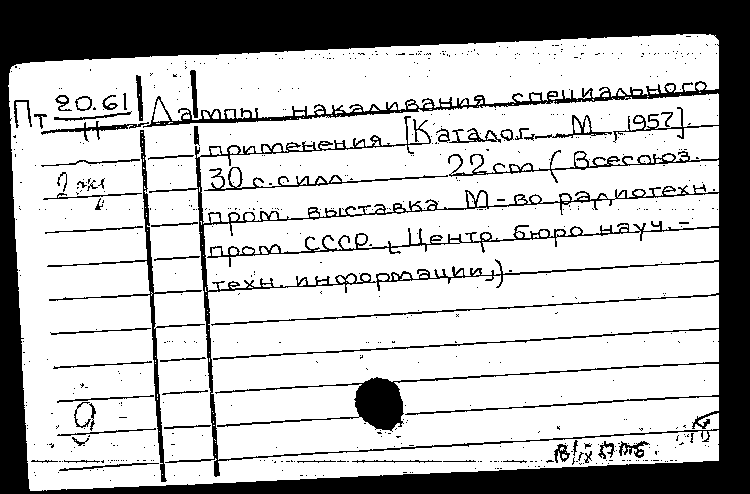 Пт 20.61 Лампы накаливания специального
11 применения. [Каталог. М., 1957].
2 экз 30 с. с илл. 22 cm (Всесоюз.
пром. выставка. М-во радиотехн.
пром. СССР. Центр. бюро науч.-
техн. информации).
g